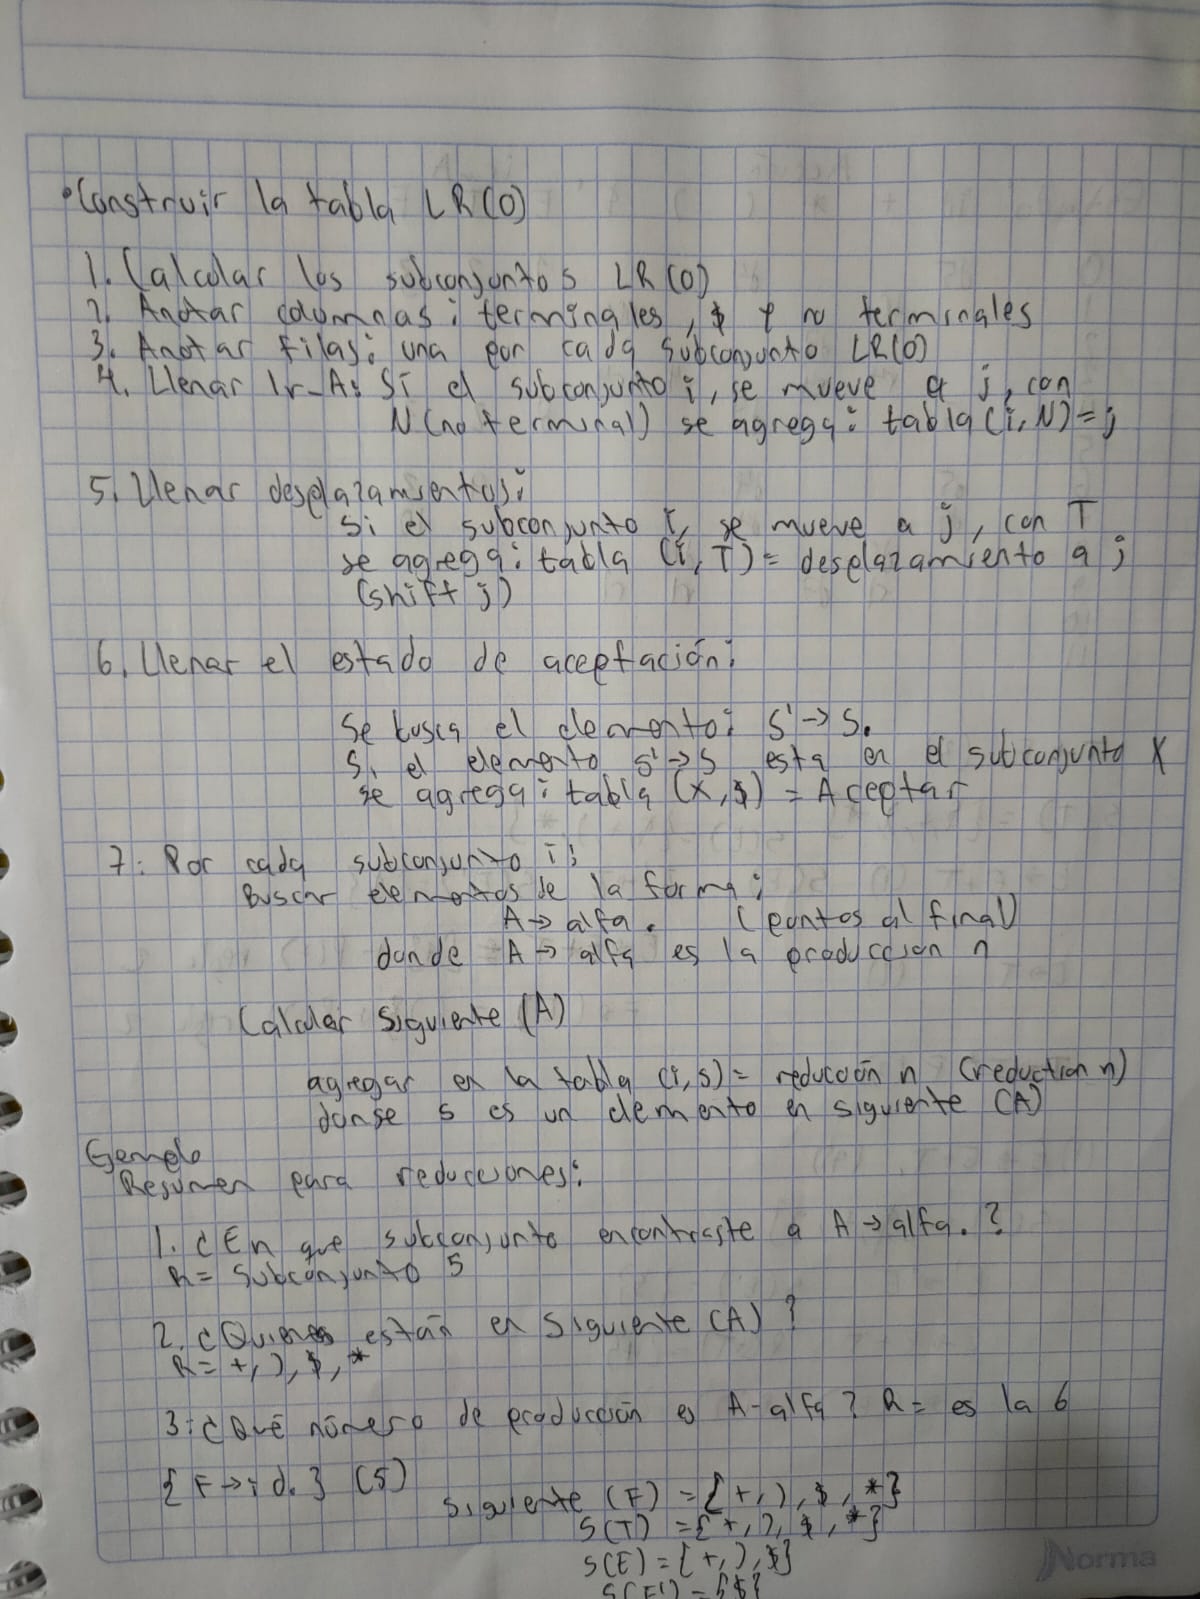 •Construir la tabla LR(0)
1. Calcular los subconjuntos LR(0)
2. Anotar columnas: terminales, $ y no terminales
3. Anotar filas: una por cada subconjunto LR(0)
4. Llenar Ir_A: Si el subconjunto i, se mueve a j, con
N (no terminal) se agrega: tabla (i, N) = j
5. Llenar desplazamientos:
Si el subconjunto I, se mueve a j, con T
se agrega: tabla (i, T) = desplazamiento a j
(shift j)
6. Llenar el estado de aceptación:
Se busca el elemento: S' -> S.
Si el elemento S' -> S esta en el subconjunto X
se agrega: tabla (X, $) = Aceptar
7: Por cada subconjunto i:
Buscar elementos de la forma:
A -> alfa. (puntos al final)
donde A -> alfa es la produccion n
Calcular Siguiente (A)
agregar en la tabla (i, s) = reducción n (reduction n)
donse s es un elemento en siguiente (A)
Ejemplo
Resumen para reducciones:
1. ¿En que subconjunto encontraste a A -> alfa. ?
R = Subconjunto 5
2. ¿Quienes están en Siguiente (A) ?
R = +, ), $, *
3: ¿Qué número de producción es A-alfa? R = es la 6
{ F -> id. } (5)
Siguiente (F) = { +, ), $, * }
S(T) = { +, ), $, * }
S(E) = { +, ), $}
S(E') = {$}
Norma